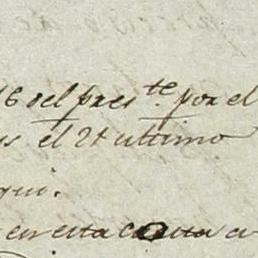 16 del pres.te por el
el 21 ultimo
qui.
en esta